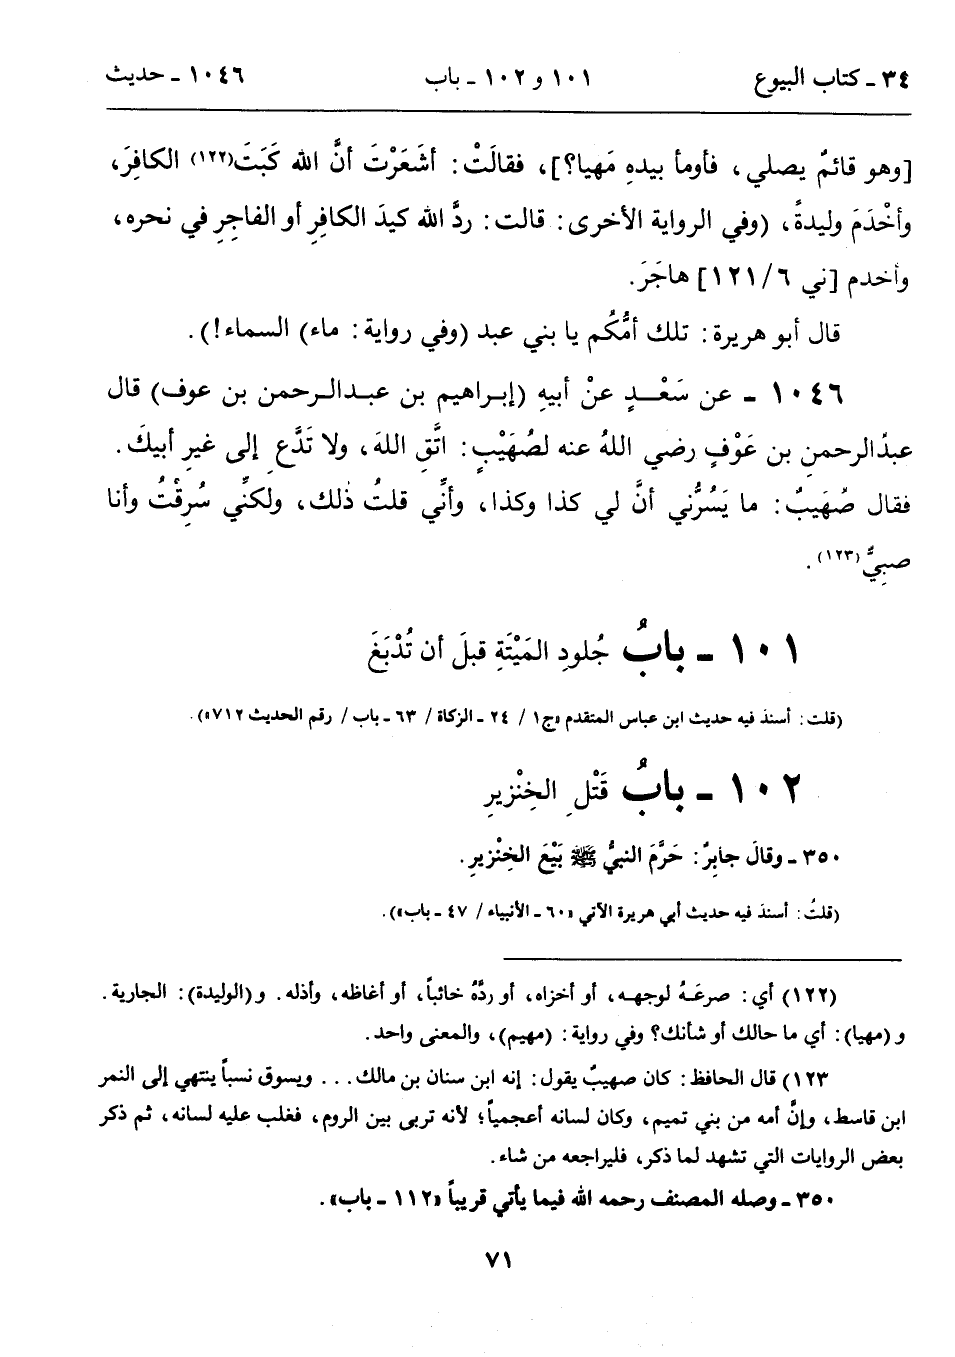 ٣٤ ـ كتاب البيوع ١٠١ و ١٠٢ ـ باب ١٠٤٦ ـ حديث
[وهو قائمٌ يصلي، فأومأ بيدهِ مَهيا؟]، فقالَتْ: أشَعَرْتَ أنَّ الله كَبَتَ(١٢٢) الكافِرَ،
وأخْدَمَ وليدةً، (وفي الرواية الأخرى: قالت: ردَّ الله كيدَ الكافِرِ أو الفاجِرِ في نحره،
وأخدم [ني ٦/ ١٢١] هاجَرَ.
قال أبو هريرة: تلك أمُّكُم يا بني عبد (وفي رواية: ماء) السماء!).
١٠٤٦ ـ عن سَعْدٍ عنْ أبيهِ (إبراهيم بن عبدالرحمن بن عوف) قال
عبدُالرحمنِ بن عَوْفٍ رضي اللهُ عنه لصُهَيْبٍ: اتَّقِ اللهَ، ولا تَدَّعِ إلى غيرِ أبيكَ.
فقال صُهَيبٌ: ما يَسُرُّني أنَّ لي كذا وكذا، وأنِّي قلتُ ذٰلك، ولكنِّي سُرِقْتُ وأنا
صبيٌّ(١٢٣).
١٠١ ـ بابُ جُلودِ المَيْتَةِ قبلَ أن تُدْبَغَ
(قلت: أسندَ فيه حديث ابن عباس المتقدم «ج١ / ٢٤ ـ الزكاة / ٦٣ ـ باب / رقم الحديث ٧١٢»).
١٠٢ ـ بابُ قَتْلِ الخِنْزيرِ
٣٥٠ ـ وقالَ جابِرٌ: حَرَّمَ النبيُّ ﷺ بَيْعَ الخِنْزيرِ.
(قلتُ: أسندَ فيه حديث أبي هريرة الآتي «٦٠ ـ الأنبياء / ٤٧ ـ باب»).
(١٢٢) أي: صرعَهُ لوجهه، أو أخزاه، أو ردَّهُ خائباً، أو أغاظه، وأذله. و(الوليدة): الجارية.
و(مهيا): أي ما حالك أو شأنك؟ وفي رواية: (مهيم)، والمعنى واحد.
١٢٣) قال الحافظ: كان صهيبٌ يقول: إنه ابن سنان بن مالك... ويسوق نسباً ينتهي إلى النمر
ابن قاسط، وإنَّ أمه من بني تميم، وكان لسانه أعجمياً؛ لأنه تربى بين الروم، فغلب عليه لسانه، ثم ذكر
بعض الروايات التي تشهد لما ذكر، فليراجعه من شاء.
٣٥٠ ـ وصله المصنف رحمه الله فيما يأتي قريباً «١١٢ ـ باب».
٧١